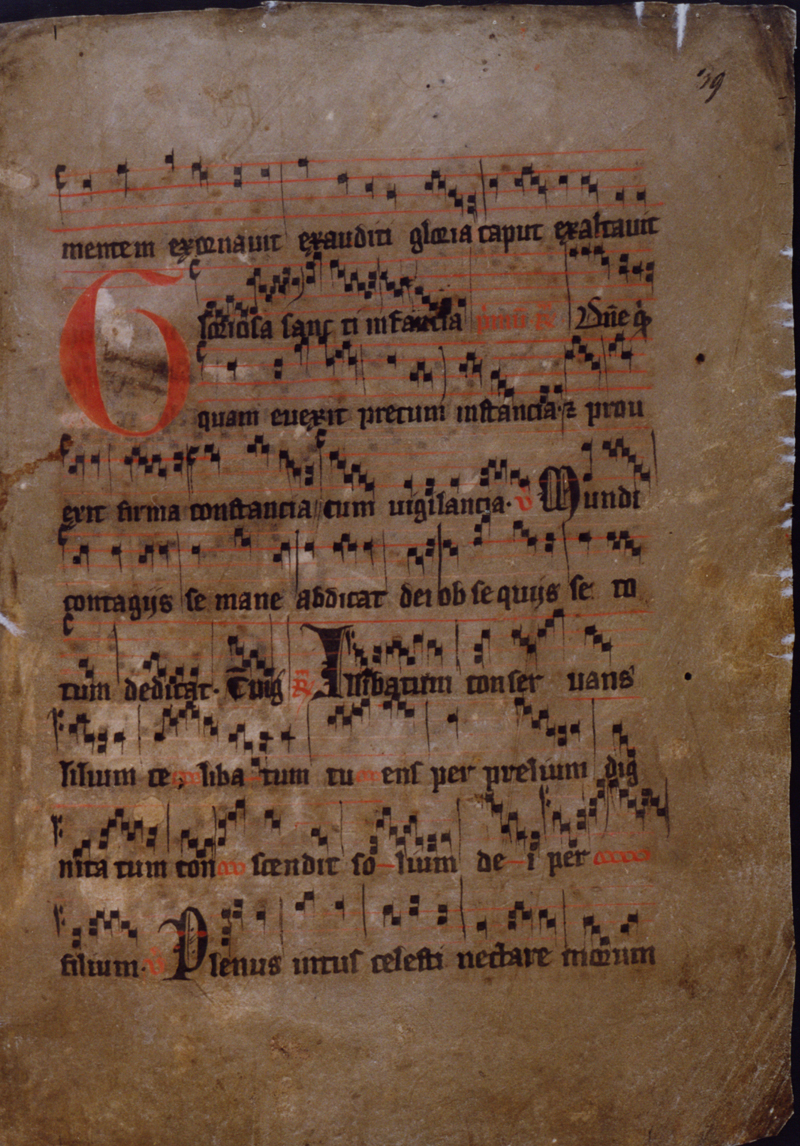 39
mentem exornauit exauditi gloria caput exaltauit
Gloriosa sanc ti infancia
quam euexit precum instancia ⁊ prou
exit firma constancia cum uigilancia. v Mundi
contagijs se mane abdicat dei ob se quijs se to
tum dedicat.
Illibatum conser uans
lilium ce liba tum tu ens per prelium dig
nita tum con scendit so lium de i per
filium. Plenus intus celesti nectare morum